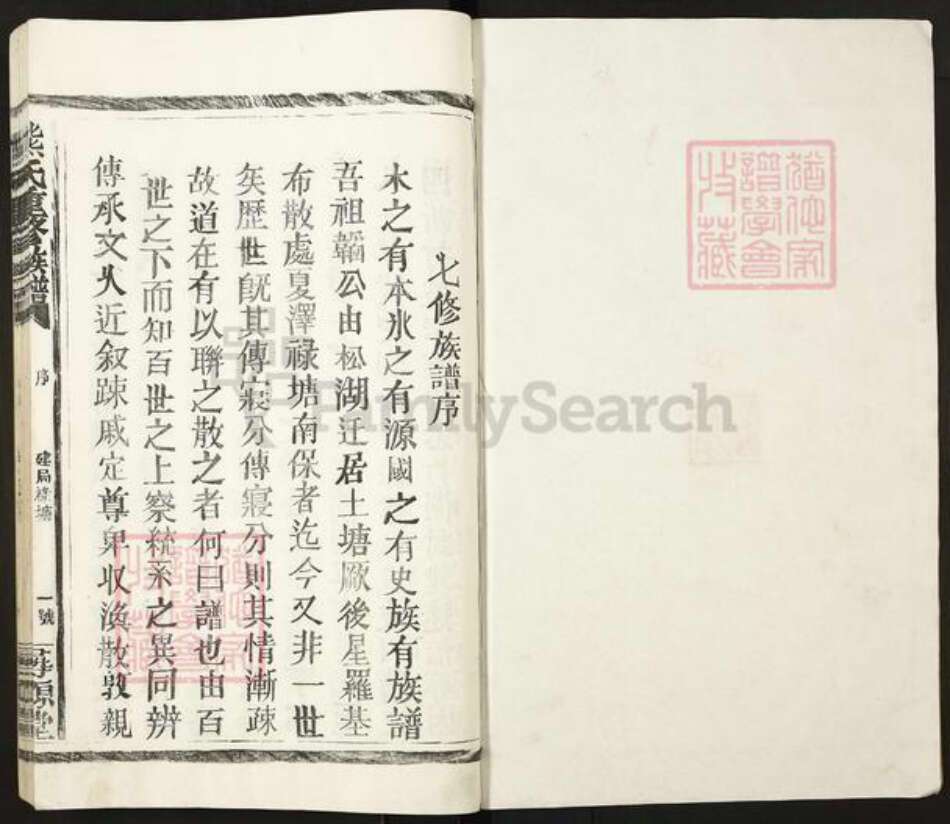 七修族譜序
木之有本水之有源國之有史族有族譜
吾祖韜公由松湖迁居土塘厥後星羅基
布散處夏澤禄塘南保者迄今又非一世
矣歴世既其傳寖分傳寖分則其情漸疎
故道在有以聨之散之者何曰譜也由百
世之下而知百世之上察統系之異同辨
傳承文人近叙疎戚定尊卑収渙散敦親
熊氏重修族譜
序
建局禄塘
一號
FamilySearch